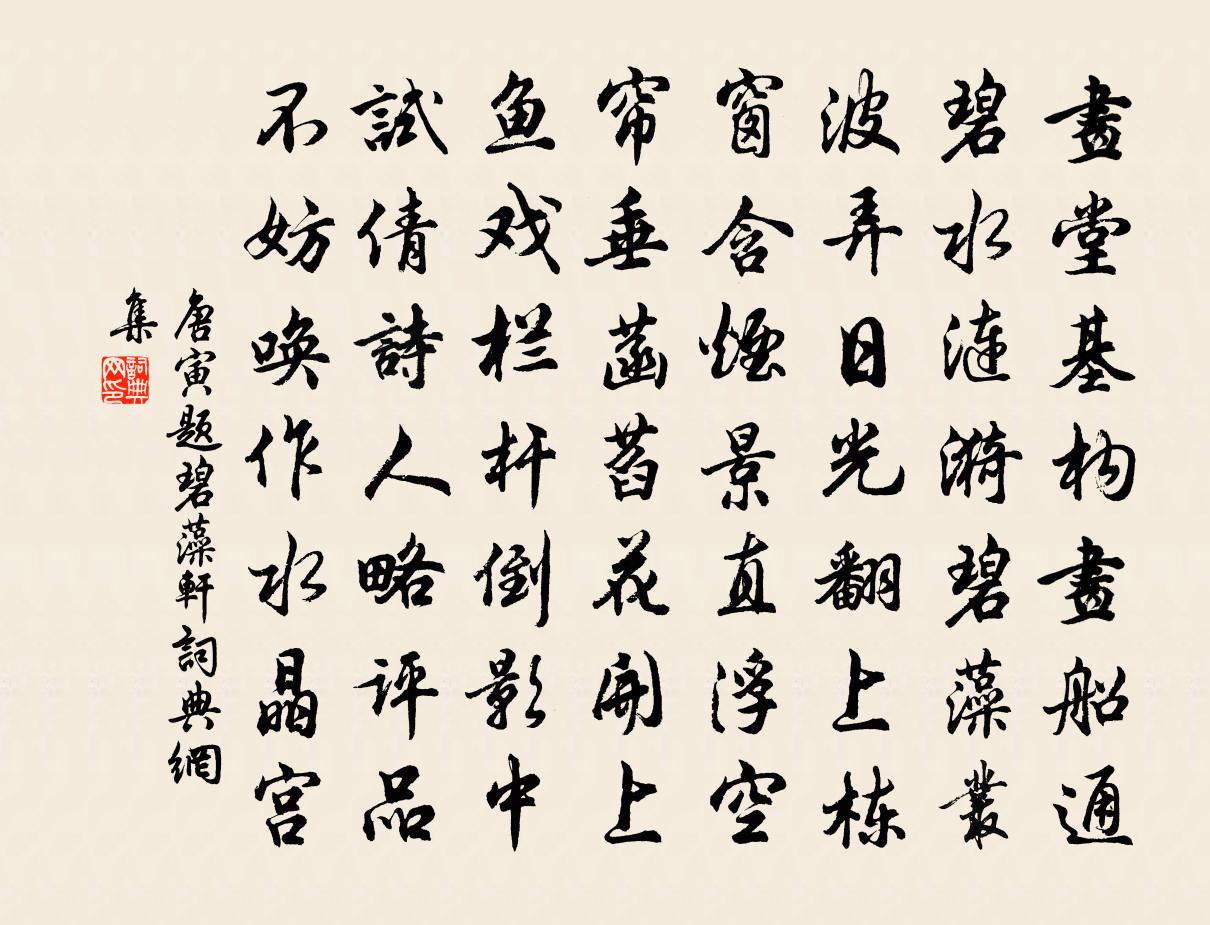 畫堂基构畫船通
碧水漣漪碧藻叢
波弄日光翻上栋
窗含煙景直浮空
帘垂菡萏花開上
鱼戏栏杆倒影中
試倩詩人略評品
不妨唤作水晶宫
唐寅题碧藻軒詞典網
集
詞典网印